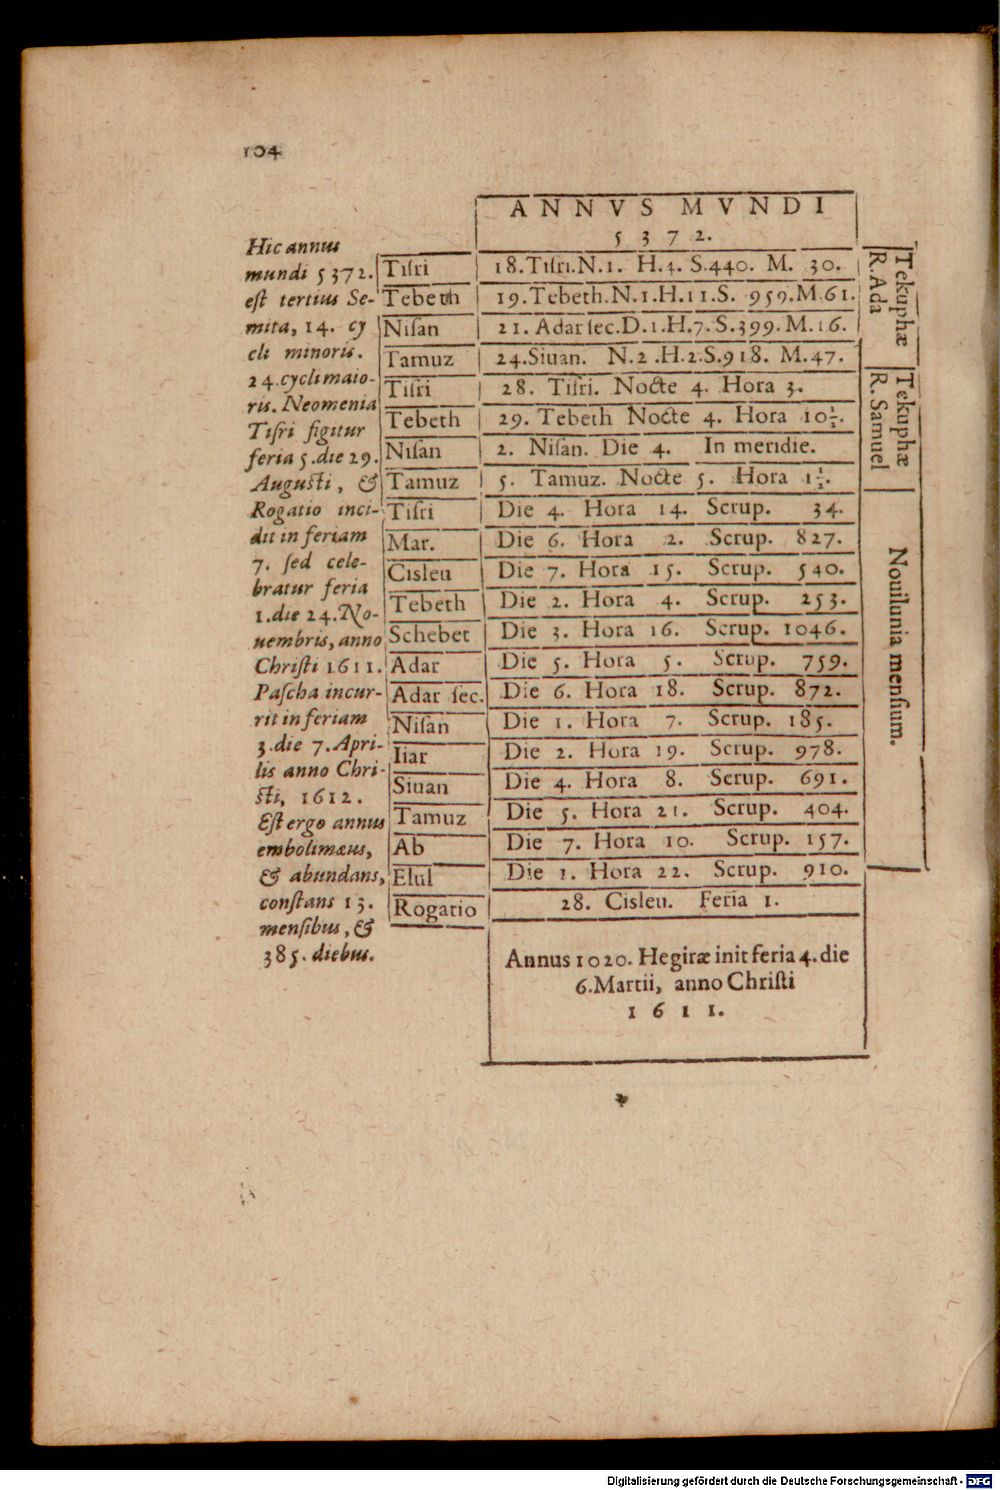 104
ANNVS MVNDI
5372.
Hic annus
mundi 5372.
est tertius Se-
mita, 14. cy
cli minoris.
24.cycli maio-
ris. Neomenia
Tiſri figitur
feria 5.die 29.
Auguſti, &
Rogatio inci-
dit in feriam
7. ſed cele-
bratur feria
1.die 24.No-
uembris, anno
Chriſti 1611.
Paſcha incur-
rit in feriam
3.die 7.Apri-
lis anno Chri-
ſti, 1612.
Eſt ergo annus
embolimæus,
& abundans,
conſtans 13.
menſibus, &
385. diebus.
Tiſri 18.Tiſri.N.1. H.4. S.440. M. 30.
Tebeth 19.Tebeth.N.1.H.11.S. 959.M.61.
Niſan 21. Adar ſec.D.1.H.7.S.399.M.16.
Tamuz 24.Siuan. N.2.H.2.S.918. M.47.
Tiſri 28. Tiſri. Nocte 4. Hora 3.
Tebeth 29. Tebeth Nocte 4. Hora 10½.
Niſan 2. Niſan. Die 4. In meridie.
Tamuz 5. Tamuz. Nocte 5. Hora 1½.
Tiſri Die 4. Hora 14. Scrup. 34.
Mar. Die 6. Hora 2. Scrup. 827.
Cisleu Die 7. Hora 15. Scrup. 540.
Tebeth Die 2. Hora 4. Scrup. 253.
Schebet Die 3. Hora 16. Scrup. 1046.
Adar Die 5. Hora 5. Scrup. 759.
Adar ſec. Die 6. Hora 18. Scrup. 872.
Niſan Die 1. Hora 7. Scrup. 185.
Iiar Die 2. Hora 19. Scrup. 978.
Siuan Die 4. Hora 8. Scrup. 691.
Tamuz Die 5. Hora 21. Scrup. 404.
Ab Die 7. Hora 10. Scrup. 157.
Elul Die 1. Hora 22. Scrup. 910.
Rogatio 28. Cisleu. Feria 1.
Tekuphæ
R. Ada
Tekuphæ
R. Samuel
Nouilunia menſium.
Annus 1020. Hegiræ init feria 4. die
6.Martii, anno Chriſti
1611.
Digitalisierung gefördert durch die Deutsche Forschungsgemeinschaft - DFG